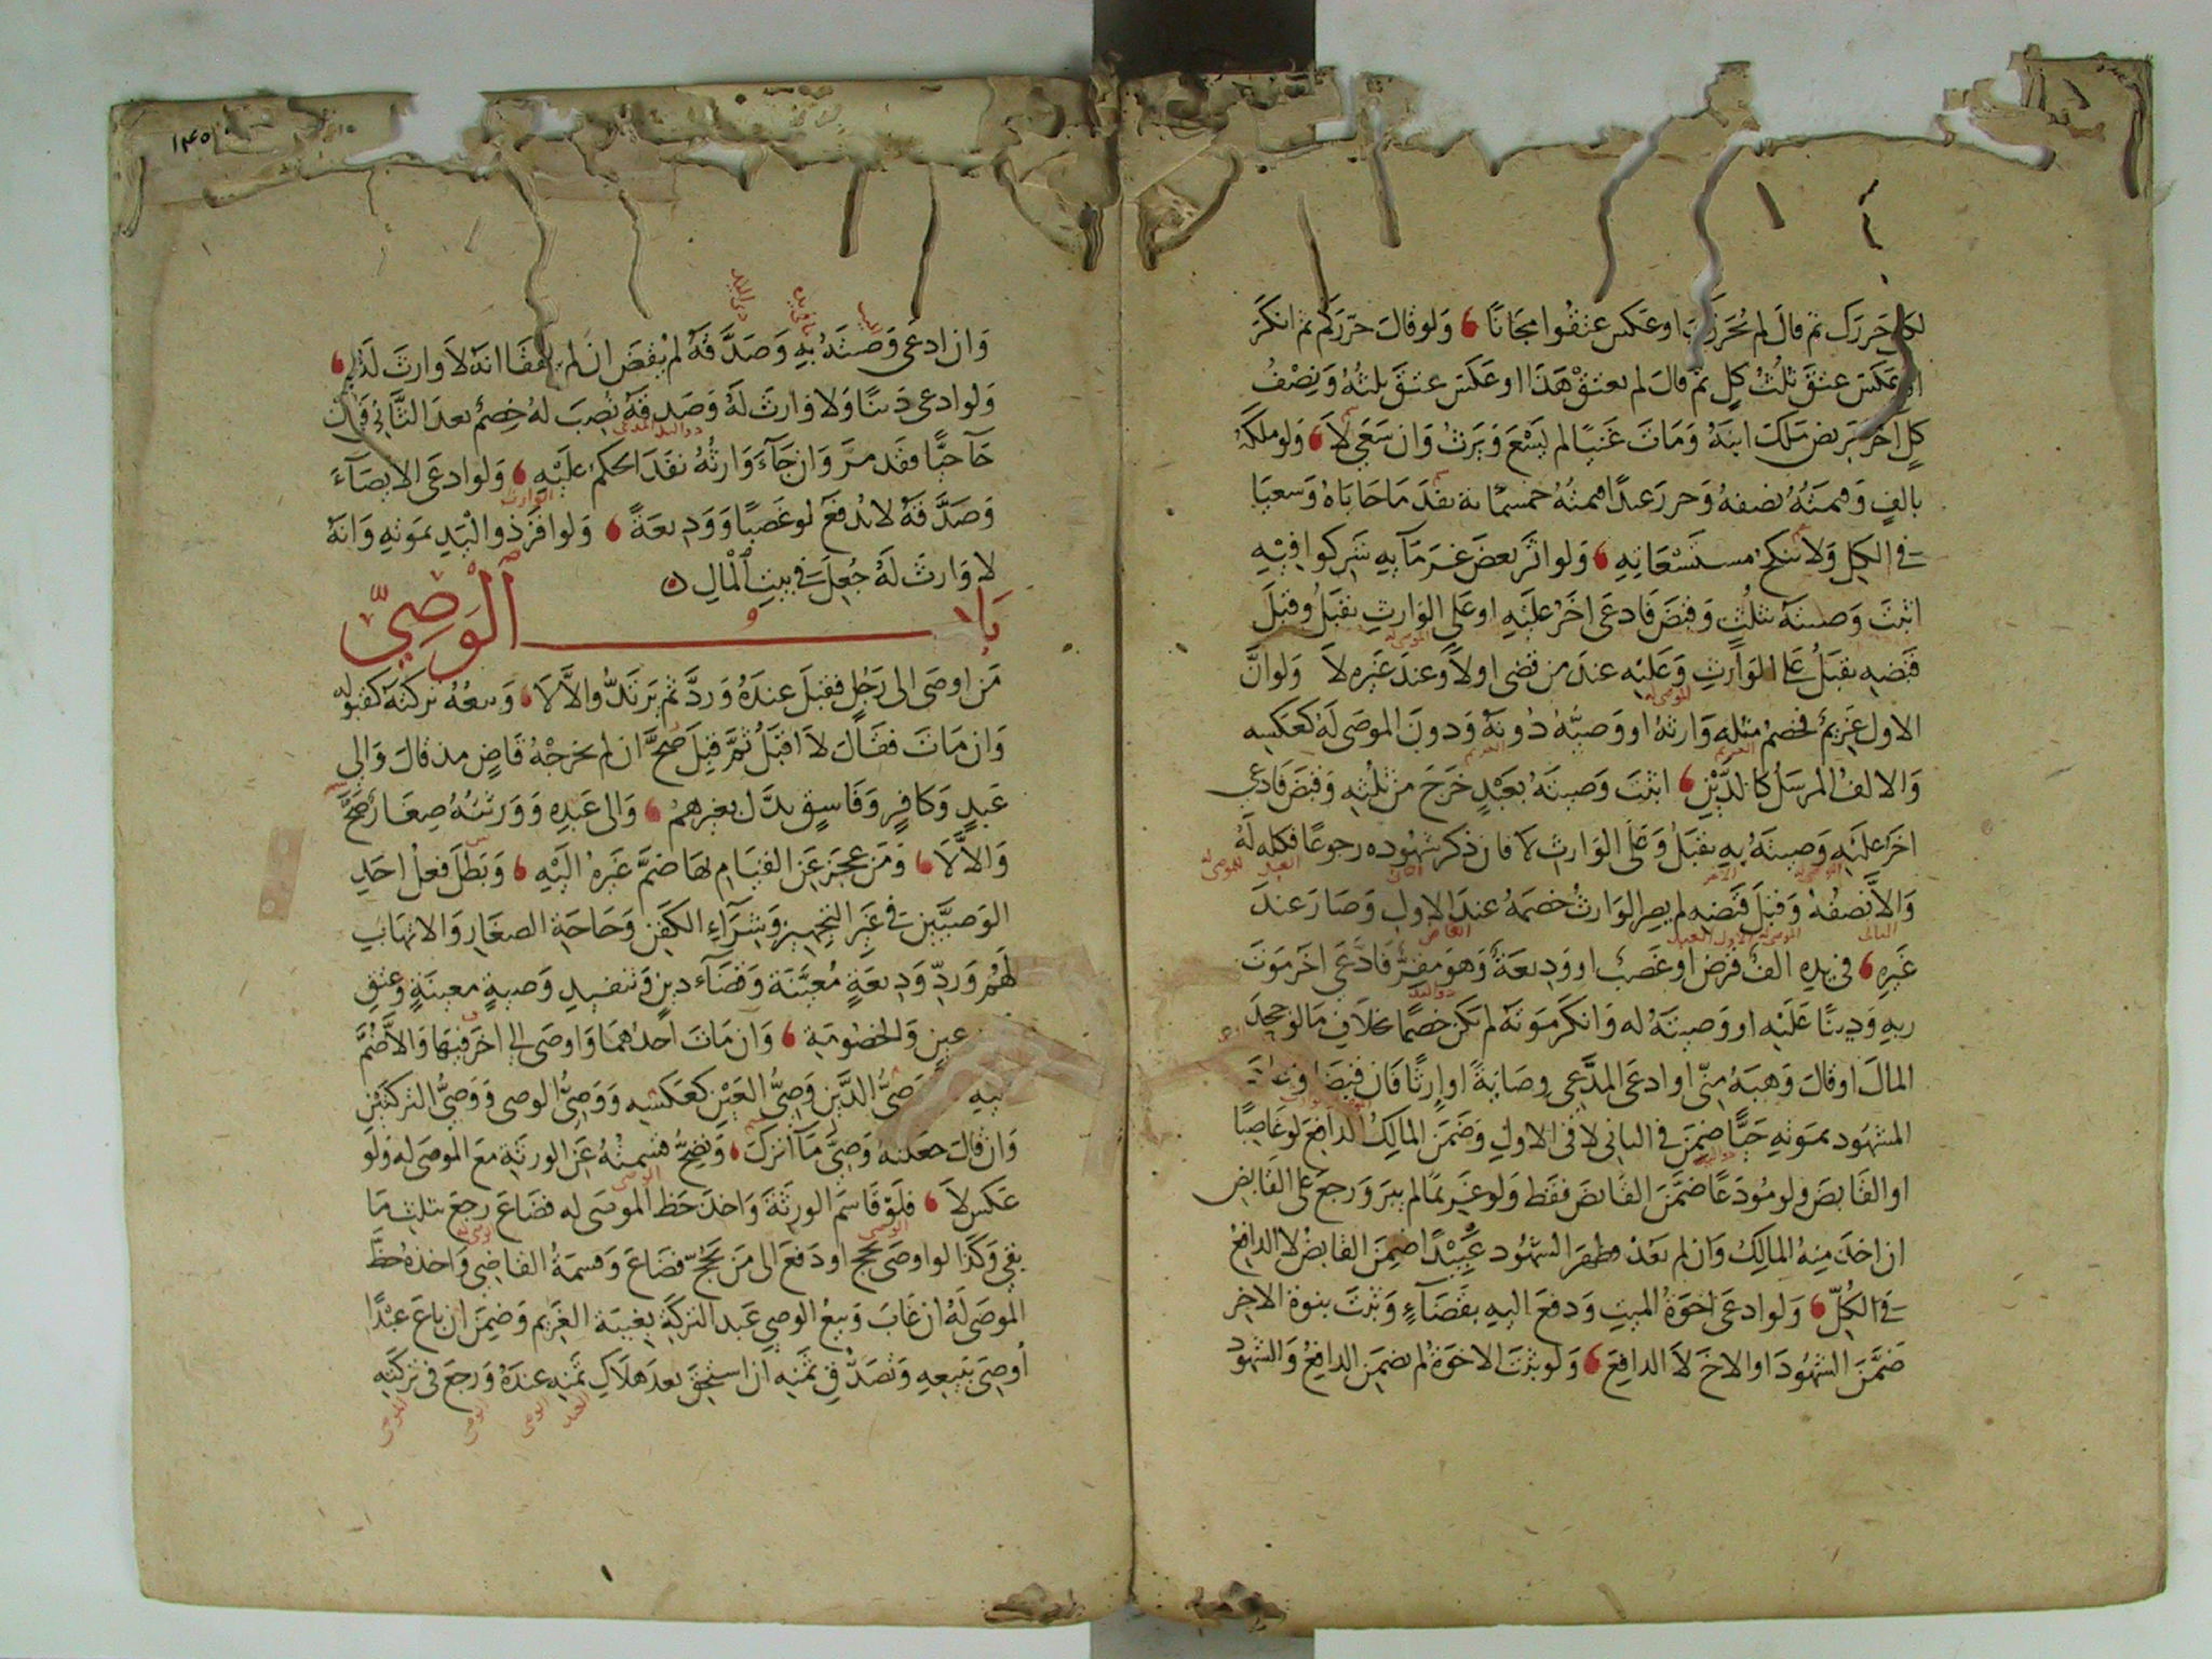 لكل حررك ثم قال لم تحرر او عكس عتقوا مجانا ولو قال حررتكم ثم انكر
او عكس عتق ثلث كل ثم قال لم يعتق هذا او عكس عتق ثلثه ونصف
كل اخر مريض ملك ابنه ومات غنيا لم يسع ويرث وان سعى لا ولو ملكه
بالف وقيمته نصفه وحرر عبدا قيمته خمسمائة نفذ ما حاباه وسعيا
في الكل ولا ينكح مستسعاته ولو اثر بعض غرمائه شركوا فيه
اثبت وصيته بثلث وقبض فادعى اخر عليه او على الوارث يقبل وقبل
قبضه يقبل على الوارث وعليه عند من قضى اولا وعند غيره لا ولو ان
الاول غريم فخصم مثله وارثه او وصيه دونه ودون الموصى له كعكسه
والالف المرسل كالدين اثبت وصيته بعبد خرج من ثلثه وقبض فادعى
اخر عليه وصيته به يقبل وعلى الوارث لا فان ذكر شهوده رجوعا فكله له
والا نصفه وقبل قبضه لم يصر الوارث خصمه عند الاول وصار عند
غيره في يده الف قرض او غصب او وديعة وهو مقر فادعى اخر موت
ربه ودينا عليه او وصيته له وانكر موته لم يكن خصما بخلاف ما لو جحد
المال او قال وهبه مني او ادعى المدعي وصاية او ارثا فان قبضا
المشهود بموته حيا ضمن في الثاني لا في الاول وضمن المالك الدافع لو غاصبا
او القابض ولو مودعا ضمن القابض فقط ولو غريما لم يبر ورجع على القابض
ان اخذ منه المالك وان لم يعد فظهر الشهود عبيدا ضمن القابض لا الدافع
في الكل ولو ادعى اخوة الميت ودفع اليه بقضاء وثبت بنوة الاخر
ضمن الشهود او الاخ لا الدافع ولو ثبت الاخوة لم يضمن الدافع والشهود
١٤٥
وان ادعى وصيته به وصدقه لم يقض ان لم انه لا وارث له
ولو ادعى دينا ولا وارث له وصدقه نصب له خصم بعد التأني فان
جآ حيا فقد مر وان جاء وارثه نفذ الحكم عليه ولو ادعى الايصاء
وصدقه لا يدفع لو غصبا ووديعة ولو اقر ذو اليد بموته وانه
لا وارث له جعل في بيت المال
باب الوصي
من اوصى الى رجل فقبل عنده ورد ثم يرتد والا لا وبيعه تركته كقبوله
وان مات فقال لا اقبل ثم قبل صح ان لم يخرجه قاض مذ قال والى
عبد وكافر وفاسق بدل بغيرهم والى عبده وورثته صغار صح
والا لا ومن عجز عن القيام بها ضم غيره اليه وبطل فعل احد
الوصيين في غير التجهيز وشراء الكفن وحاجة الصغار والاتهاب
لهم ورد وديعة معينة وقضاء دين وتنفيذ وصية معينة وعتق
عين والخصومة وان مات احدهما واوصى الى اخر فبها والا ضم
وصي الدين وصي العين كعكسه ووصي الوصي ووصي التركتين
وان قال جعلته وصي ما اترك وتصح قسمته عن الورثة مع الموصى له ولو
عكس لا فلو قاسم الورثة واخذ حظ الموصى له فضاع رجع بثلث ما
بقي وكذا لو اوصى بحج او دفع الى من يحج فضاع وقسمة القاضي واخذه حظ
الموصى له ان غاب وبيع الوصي عبد التركة بغيبة الغريم وضمن ان باع عبدا
اوصى ببيعه وتصدق ثمنه ان استحق بعد هلاك ثمنه عنده ورجع في تركته